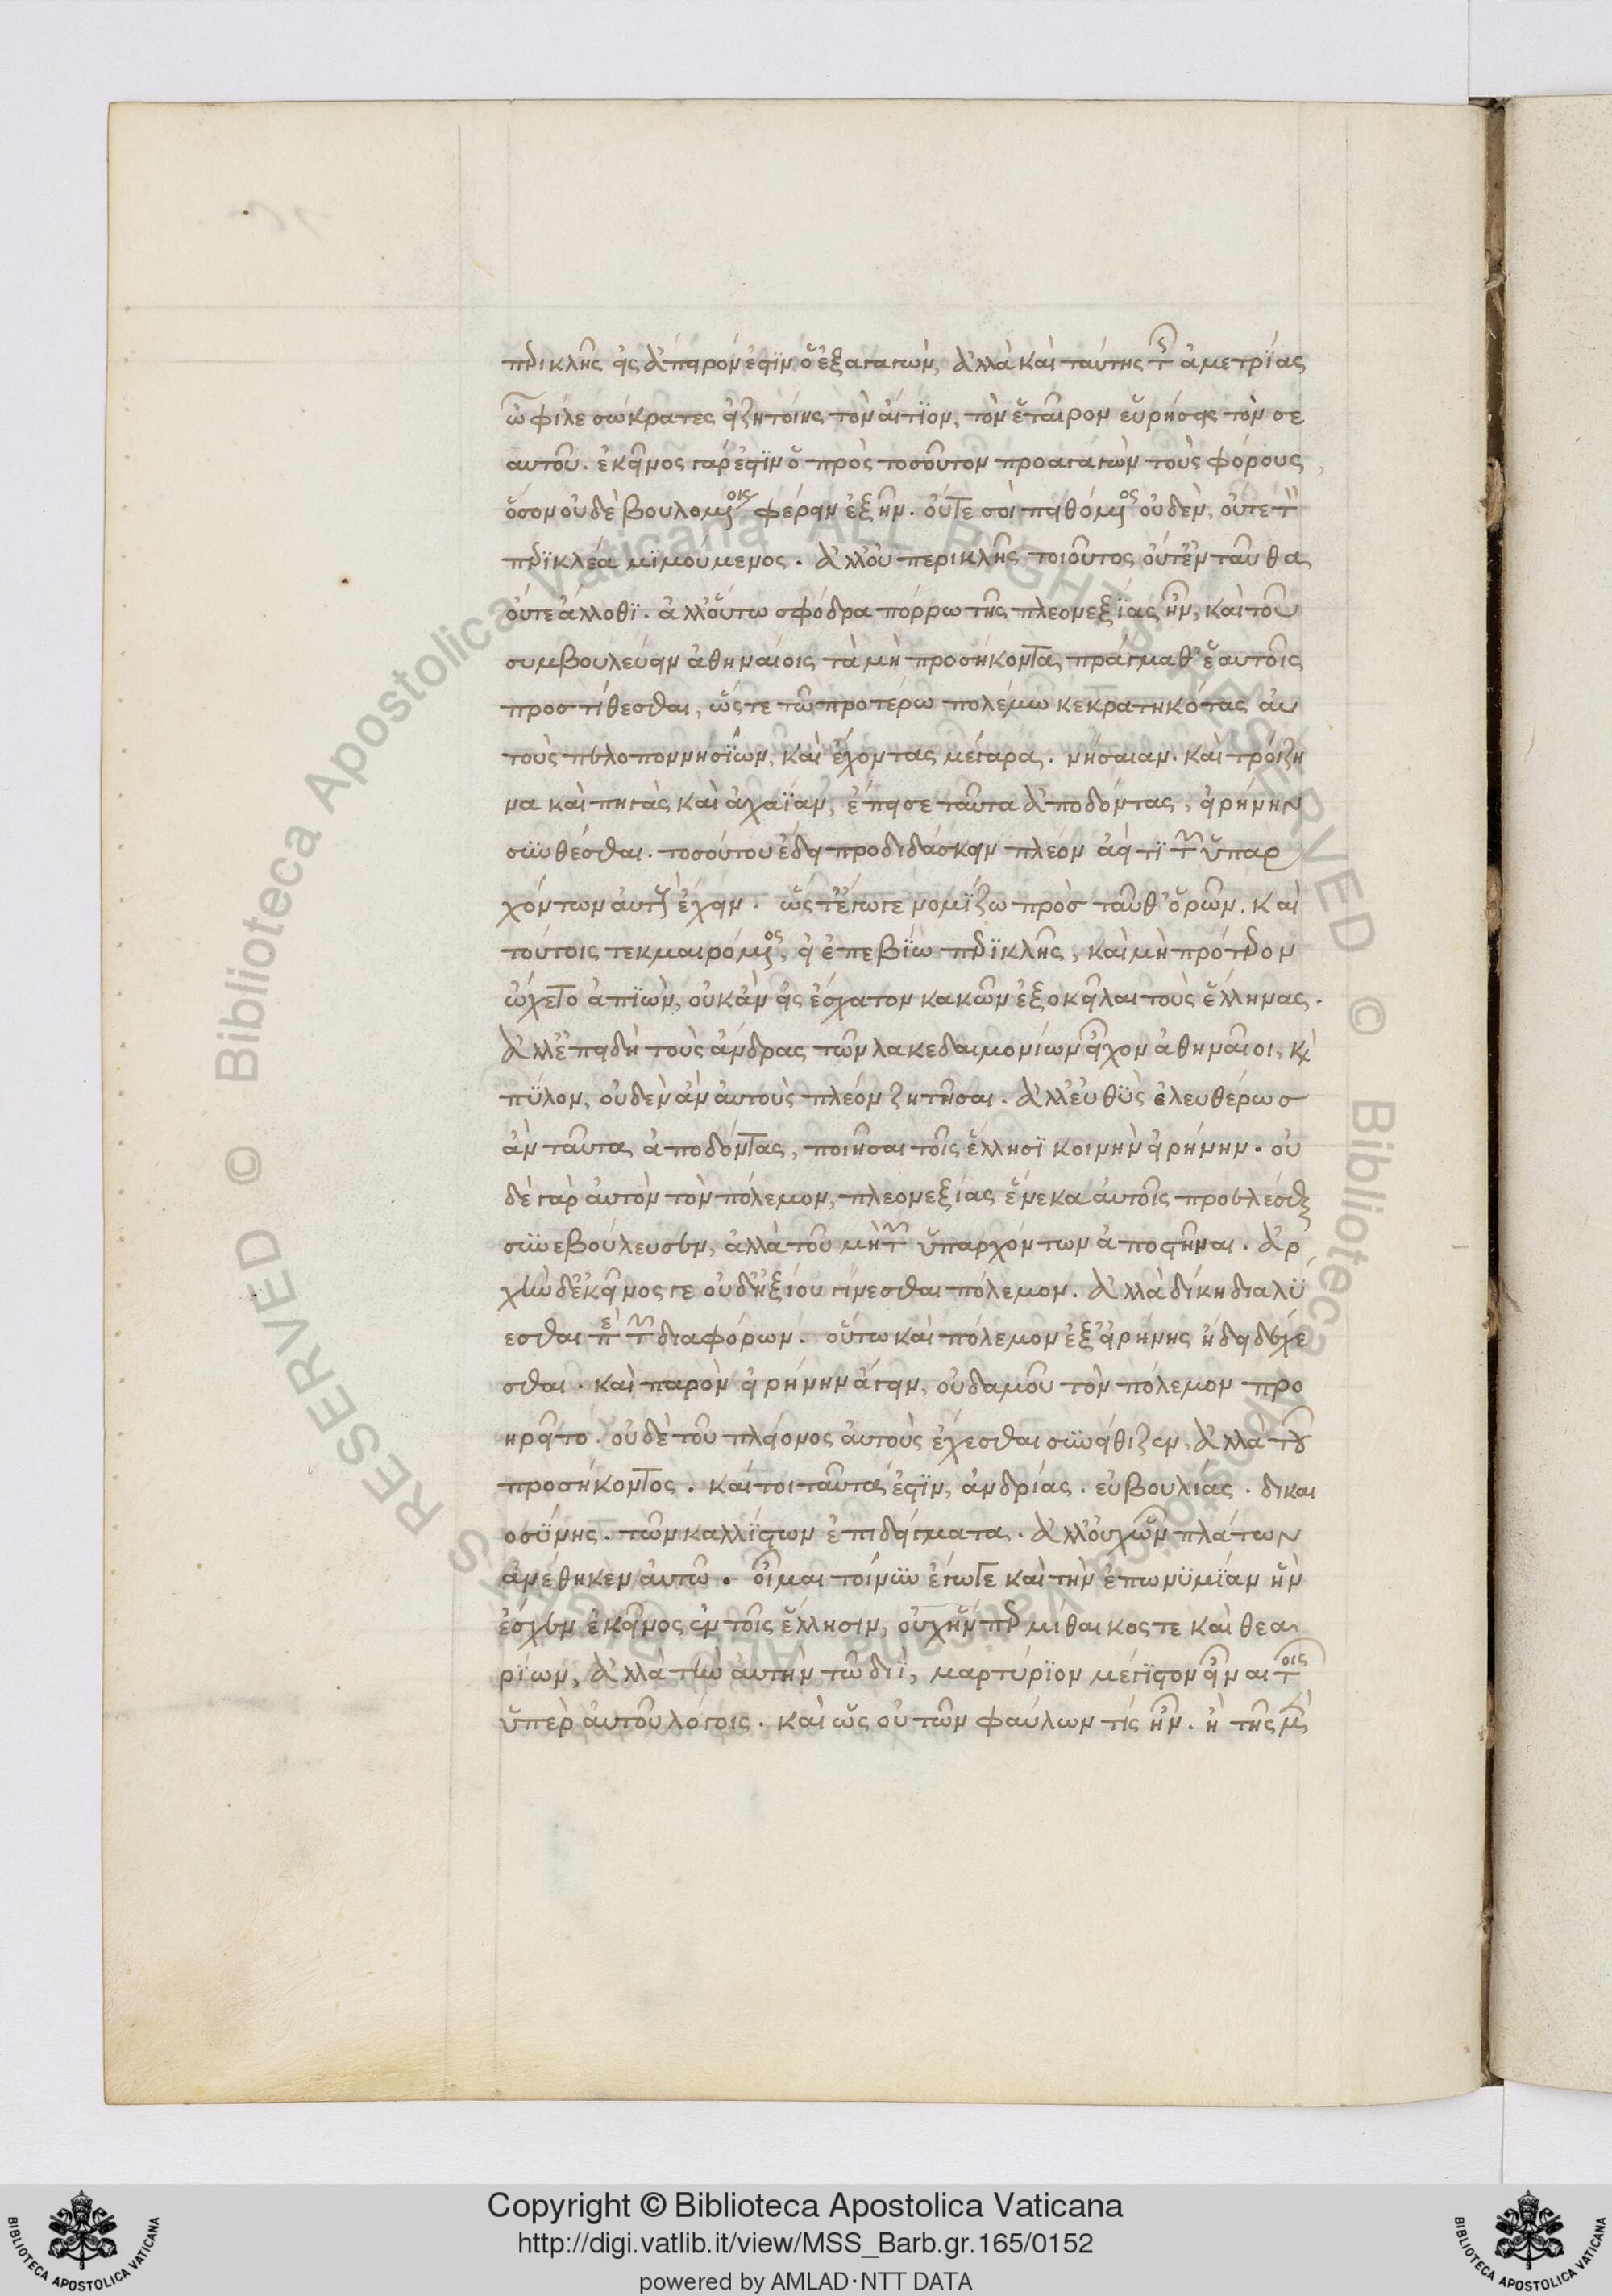 περικλῆς εἰς ἅπαρόν ἐστιν ὁ ἐξαπατῶν, ἀλλὰ καὶ ταύτης τῆς ἀμετρίας
ὦ φίλε σώκρατες εἰ ζητοίης τὸν αἴτιον, τὸν ἑταῖρον εὑρήσεις τὸν σε
αυτοῦ. ἐκεῖνος γάρ ἐστιν ὁ πρὸς τοσοῦτον προαγαγὼν τοὺς φόρους,
ὅσον οὐδὲ βουλομένοις φέρειν ἐξῆν. οὔτε σοὶ πειθόμενος οὐδὲν, οὔτε τὸν
περικλέα μιμούμενος. ἀλλ' οὐ περικλῆς τοιοῦτος οὔτ' ἐνταῦθα
οὔτε ἄλλοθι. ἀλλ' οὕτω σφόδρα πόρρω τῆς πλεονεξίας ἦν, καὶ τοῦ
συμβουλεύειν ἀθηναίοις τὰ μὴ προσήκοντα πράγμαθ' ἑαυτοῖς
προστίθεσθαι, ὥστε τῶ προτέρω πολέμω κεκρατηκότας αὐ
τοὺς πελοποννησίων, καὶ ἔχοντας μέγαρα. νήσαιαν. καὶ τροιζῆ
να καὶ πηγὰς καὶ ἀχαΐαν, ἔπεισε ταῦτα ἀποδόντας, εἰρήνην
συνθέσθαι. τοσούτου ἔδει προδιδάσκειν πλέον ἀεί τι τῶν ὑπαρ
χόντων αὐτοὺς ἔχειν. ὥστ' ἔγωγε νομίζω πρὸς ταῦθ' ὁρῶν. καὶ
τούτοις τεκμαιρόμενος, εἰ ἐπεβίω περικλῆς, καὶ μὴ πρότερον
ᾤχετο ἀπιὼν, οὐκ ἂν εἰς ἔσχατον κακῶν ἐξοκεῖλαι τοὺς ἕλληνας.
ἀλλ' ἐπειδὴ τοὺς ἄνδρας τῶν λακεδαιμονίων εἶχον ἀθηναῖοι, καὶ
πύλον, οὐδὲν ἂν αὐτοὺς πλέον ζητῆσαι. ἀλλ' εὐθὺς ἐλευθέρως
ἂν ταῦτα ἀποδόντας, ποιῆσαι τοῖς ἕλλησι κοινὴν εἰρήνην. οὐ
δὲ γὰρ αὐτὸν τὸν πόλεμον, πλεονεξίας ἕνεκα αὐτοῖς προελέσθαι
συνεβούλευσεν, ἀλλὰ τοῦ μὴ τῶν ὑπαρχόντων ἀποστῆναι. ἀρ
χὴν δ' ἐκεῖνός γε οὐδ' ἠξίου γίνεσθαι πόλεμον. ἀλλὰ δίκη διαλύ
εσθαι περὶ τῶν διαφόρων. οὕτω καὶ πόλεμον ἐξ εἰρήνης ᾔδει δέχε
σθαι. καὶ παρὸν εἰρήνην ἄγειν, οὐδαμοῦ τὸν πόλεμον προ
ηρεῖτο. οὐδὲ τοῦ πλείονος αὐτοὺς ἔχεσθαι συνείθιζεν, ἀλλὰ τοῦ
προσήκοντος. καίτοι ταῦτά ἐστιν, ἀνδρίας. εὐβουλίας. δικαι
οσύνης. τῶν καλλίστων ἐπιδείγματα. ἀλλ' οὐχ ὧν πλάτων
ἀνέθηκεν αὐτῶ. οἶμαι τοίνυν ἔγωγε καὶ τὴν ἐπωνυμίαν ἣν
ἔσχεν ἐκεῖνος ἐν τοῖς ἕλλησιν, οὐχ ἥνπερ μίθαικός τε καὶ θεα
ρίων, ἀλλὰ τὴν αὐτὴν τῶ διὶ, μαρτύριον μέγιστον εἶναι τοῖς
ὑπὲρ αὐτοῦ λόγοις. καὶ ὡς οὐ τῶν φαύλων τίς ἦν. ἢ τῆς
Copyright © Biblioteca Apostolica Vaticana
http://digi.vatlib.it/view/MSS_Barb.gr.165/0152
powered by AMLAD·NTT DATA